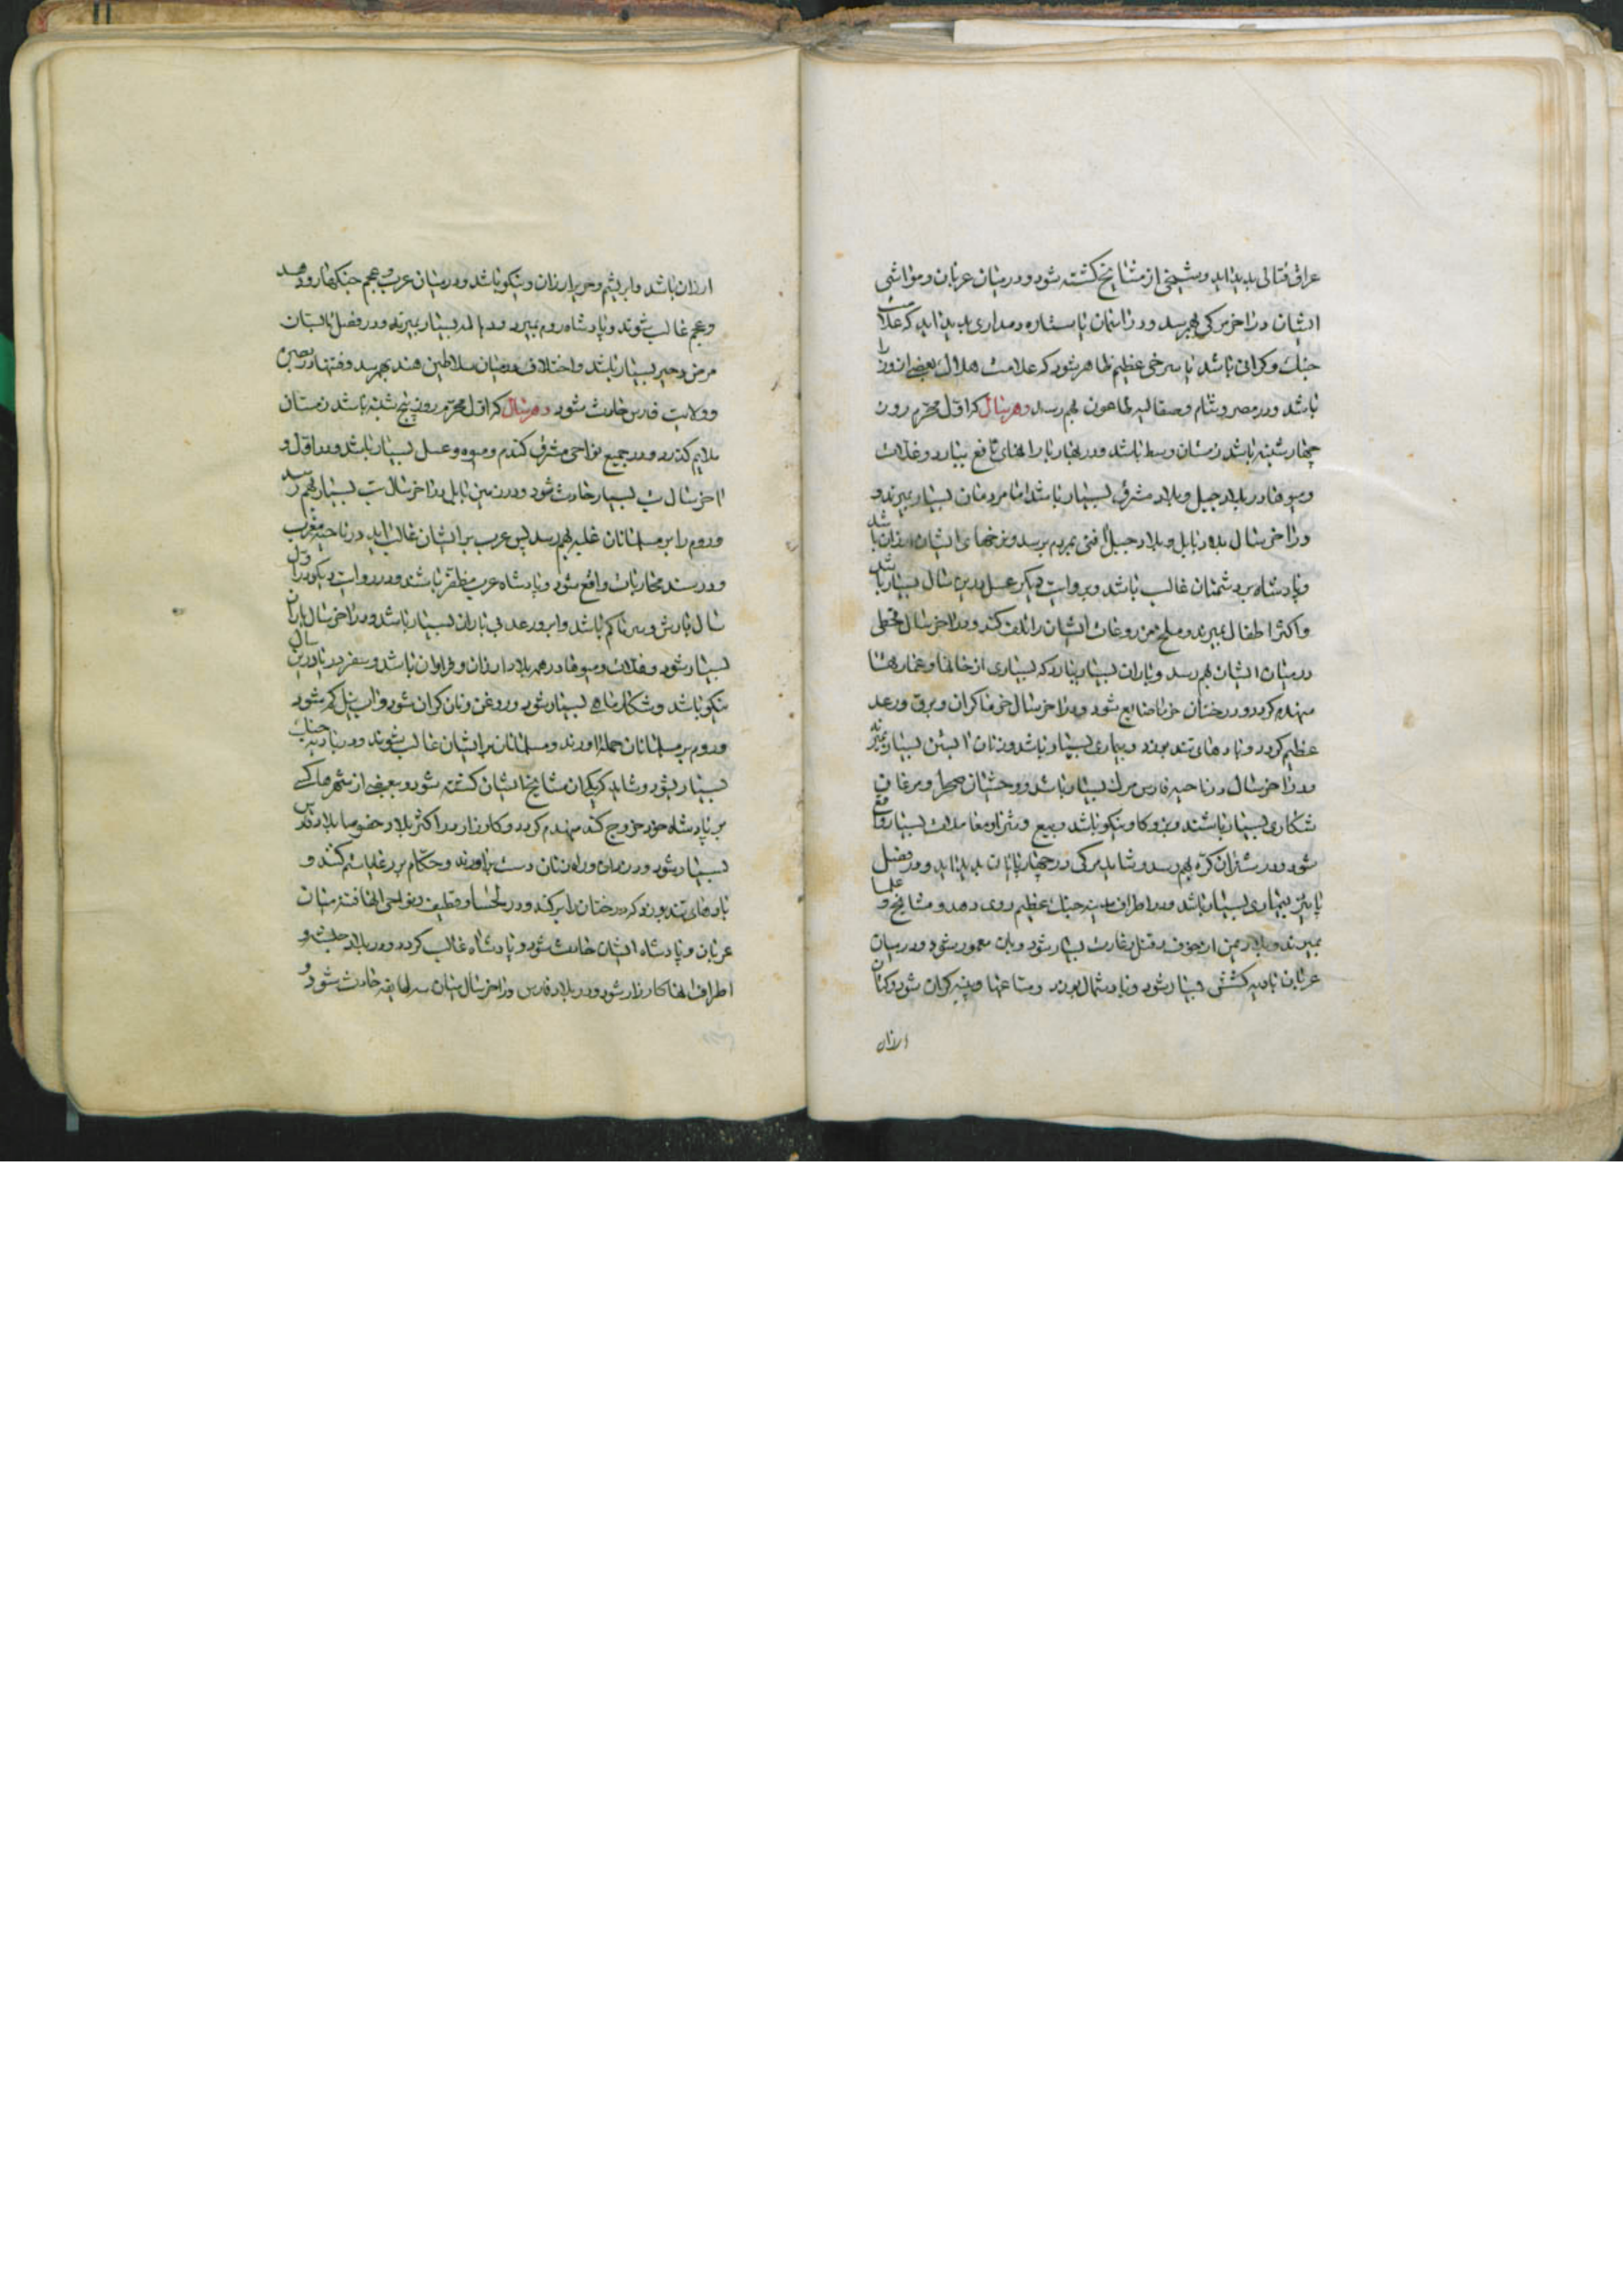 عراق قتالی پدید اید و شیخی از مشایخ کشته شود و در میان عربان و مواشی
ایشان در اخر مرکی بهم رسد و در اسمان یا ستاره دمداری پدید اید که علامت
جنک و کرانی باشد یا سرخی عظیم ظاهر شود که علامت هلاک بعضی از وزرا
باشد و در مصر و شام و صقالبه طاعون بهم رسد و هر سال که اول محرم روز
چهارشنبه باشد زمستان وسط باشد و در بهار بارانهای نافع ببارد و غلات
و میوها در بلاد جبل و بلاد مشرق بسیار باشد اما مردمان بسیار بمیرند و
در اخر سال بدد بابل و بلاد جبل افتی بمردم برسد و نرخهای ایشان ارزان باشد
و پادشاه بر دشمنان غالب باشد و بروایت دیکر عسل درین سال بسیار باشد
و اکثر اطفال بمیرند و ملخ مزروعات ایشان را تلف کند و در اخر سال قحطی
در میان ایشان بهم رسد و باران بسیار ببارد که بسیاری از خانها و عمارتها
منهدم کردد و درختان خرما ضایع شود و در اخر سال خرما کران و برق و رعد
عظیم کردد و بادهای تند بوزد و بیماری بسیار باشد و زنان ابستن بسیار بمیرند
و در اخر سال در ناحیه فارس مرک بسیار باشد و وحشیان صحرا و مرغان
شکاری بسیار باشند و بز و کاو نیکو باشد و بیع و شرا و معاملات بسیار واقع
شود و در شتران کره بهم رسد و شاید مرکی در چهارپایان پدید اید و در فصل
پاییز بیماری بسیار باشد و در اطراف مدینه جنک عظیم روی دهد و مشایخ و علما
بمیرند و بلاد یمن از خوف و قتل و غارت بسیار شود و بان معمور شود و در میان
عربان بادیه کشش بسیار شود و باد شمال بوزد و متاعها و پنبه کران شود و کتان
ارزان
ارزان باشد و ابریشم و حریر ارزان و نیکو باشد و در میان عرب و عجم جنکها رو دهد
و عجم غالب شوند و پادشاه روم بمیرد و بسیار بمیرند و در فصل تابستان
مرض و حیر بسیار باشد و اختلاف در میان سلاطین هند بهم رسد و فتنها در بصره
و ولایت فارس حادث شود و هر سال که اول محرم روز پنج شنبه باشد زمستان
ملایم کذرد و در جمیع نواحی مشرق کندم و میوه و عسل بسیار باشد و در اول و
اخر سال تب بسیار حادث شود و در زمین بابل در اخر سال تب بسیار بهم رسد
و روم را بر مسلمانان غلبه بهم رسد پس عرب بر ایشان غالب اید در ناحیه مغرب
و در سند محاربات واقع شود و پادشاه عرب مظفر باشند و در روایت دیکر در اول
سال بارش و سرما کم باشد و ابر و رعد بی باران بسیار باشد و در اخر سال باران
بسیار شود و غلات و میوها در همه بلاد ارزان و فراوان باشد و سفر دریا درین سال
نیکو باشد و شکار ماهی بسیار شود و روغن و نان کران شود و اب نیل کم شود
و روم بر مسلمانان حمله اورند و مسلمانان بر ایشان غالب شوند و در بادیه جنک
بسیار شود و شاید که یکی از مشایخ ایشان کشته شود و بعضی از شهرها که
بر پادشاه خود خروج کند منهدم کردد و کارزار در اکثر بلاد خصوصا بلاد فارس
بسیار شود و دزدان و راه زنان دست برآورند و حکام بر رعایا ستم کنند و
بادهای تند بوزد که درختان را بر کند و در لحسا و قطیف و نواحی انها فتنه میان
عربان و پادشاه ایشان حادث شود و پادشاه غالب کردد و در بلاد حبشه و
اطراف انها کارزار شود و در بلاد فارس در اخر سال میان سه طایفه حادث شود و